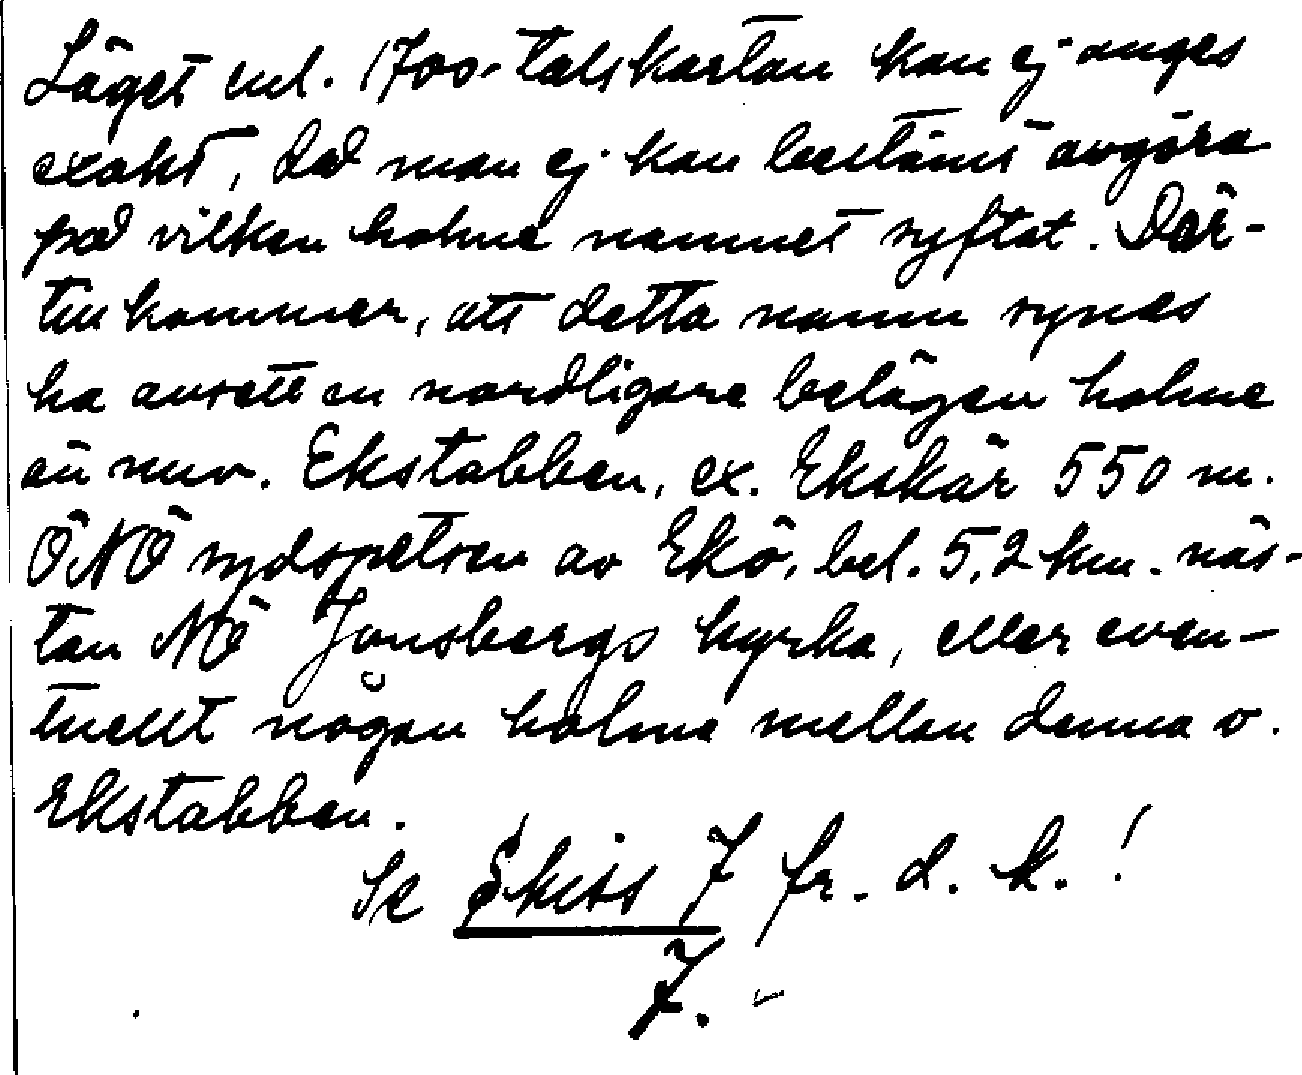 Läget enl. 1700-talskartan kan ej anges
exakt, då man ej kan bestämt avgöra
på vilken holme namnet syftat. Där-
till kommer, att detta namn synes
ha avsett en nordligare belägen holme
än nuv. Ekstabben, ex. Ekskär 550 m.
ÖNÖ sydspetsen av Ekö, bel. 5,2 km. näs-
tan NÖ Jonsbergs kyrka, eller even-
tuellt någon holme mellan denna o.
Ekstabben.
Se Skiss 7 fr. d. k.!
7.